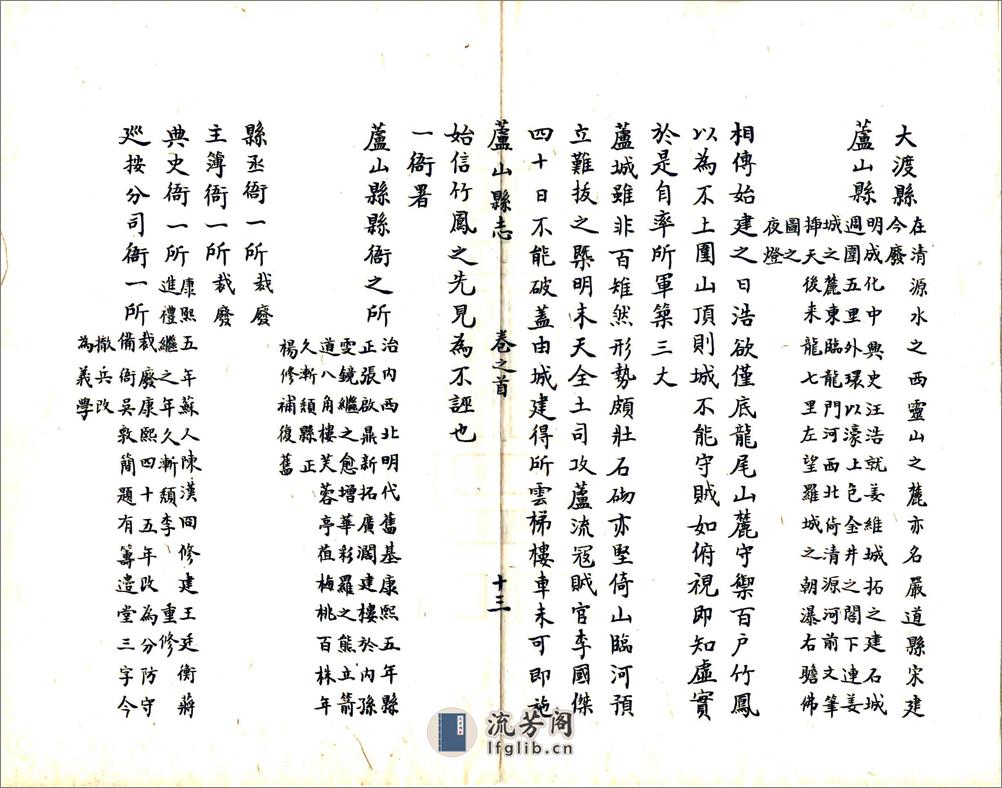 大渡縣 在清源水之西靈山之麓亦名嚴道縣宋建
今廢
蘆山縣 明成化中典史汪浩就姜維城拓之建石城
週圍五里外環以濠上包金井之閣下連姜
城之麓東臨龍門河西北倚清源河前文筆
挿天後来龍七里左望羅城之朝瀑右瞻佛
圖之
夜燈
相傳始建之日浩欲僅底龍尾山麓守禦百户竹鳳
以為不上圍山頂則城不能守賊如俯視即知虛實
於是自率所軍築三丈
蘆城雖非百雉然形勢頗壯石砌亦堅倚山臨河預
立難拔之槩明末天全土司攻蘆流冦賊官李國傑
四十日不能破蓋由城建得所雲梯樓車未可即施
蘆山縣志 卷之首 十三
始信竹鳳之先見為不誣也
一衙署
蘆山縣縣衙之所 治内西北明代舊基康熙五年縣
正張啟鼎新拓廣濶建樓於内孫
雯鏡繼之愈增華彩羅之熊立箭
道八角樓芙蓉亭植梅桃百株年
久漸頽縣正
楊修補復舊
縣丞衙一所裁廢
主簿衙一所裁廢
典史衙一所 康熙五年蘇人陳漢同修建王廷衡蔣
進禮繼之年久漸頽李重修
巡按分司衙一所 裁廢康熙四十五年改為分防守
備衙吳敦簡題有籌造堂三字今
撤兵改
為義學
流芳阁
lfglib.cn